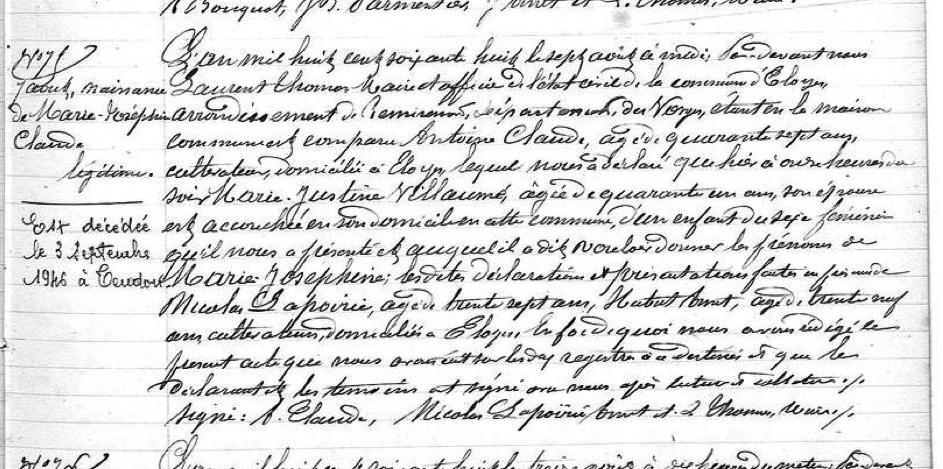 Parmentier,
Août, naissance
de Marie-Joséphine
Claude
légitime.
Est décédé
le 3 Septembre
1946 à
L'an mil huit cent soixante huit le sept août à midi; Par devant nous
Laurent Thomas Maire et officier de l'état civil de la commune d'Eloyes,
arrondissement de Remiremont, département des Vosges, étant en la maison
commune est comparu Antoine Claude, agé de quarante sept ans,
cultivateur, domicilié à Eloyes lequel nous a déclaré que hier à onze heures du
soir Marie-Justine Villaumé, âgée de quarante un ans, son épouse
est accouchée en son domicile en cette commune, d'un enfant du sexe féminin
qu'il nous a présenté et auquel il a dit vouloir donner les prénoms de
Marie-Josephine; lesdites déclarations et présentations faites en présence de
Nicolas Lapoirie, agé de trente sept ans, Hubert agé de trente neuf
ans cultivateurs, domiciliés à Eloyes. En foi de quoi nous avons rédigé le
présent acte que nous avons sur les registres à ce destinés et que le
déclarant et les témoins ont signé avec nous après lecture et
Signé: A. Claude, Nicolas Lapoirie et L Thomas, maire./.